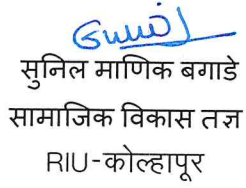 सुनिल माणिक बगाडे
सामाजिक विकास तज्ञ
RIU-कोल्हापूर